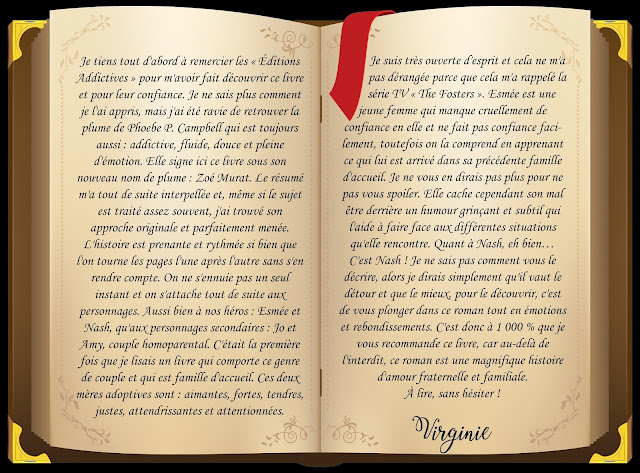 Je tiens tout d'abord à remercier les « Éditions
Addictives » pour m'avoir fait découvrir ce livre
et pour leur confiance. Je ne sais plus comment
je l'ai appris, mais j'ai été ravie de retrouver la
plume de Phoebe P. Campbell qui est toujours
aussi : addictive, fluide, douce et pleine
d'émotion. Elle signe ici ce livre sous son
nouveau nom de plume : Zoé Murat. Le résumé
m'a tout de suite interpellée et, même si le sujet
est traité assez souvent, j'ai trouvé son
approche originale et parfaitement menée.
L'histoire est prenante et rythmée si bien que
l'on tourne les pages l'une après l'autre sans s'en
rendre compte. On ne s'ennuie pas un seul
instant et on s'attache tout de suite aux
personnages. Aussi bien à nos héros : Esmée et
Nash, qu'aux personnages secondaires : Jo et
Amy, couple homoparental. C'était la première
fois que je lisais un livre qui comporte ce genre
de couple et qui est famille d'accueil. Ces deux
mères adoptives sont : aimantes, fortes, tendres,
justes, attendrissantes et attentionnées.
Je suis très ouverte d'esprit et cela ne m'a
pas dérangée parce que cela m'a rappelé la
série TV « The Fosters ». Esmée est une
jeune femme qui manque cruellement de
confiance en elle et ne fait pas confiance faci-
lement, toutefois on la comprend en apprenant
ce qui lui est arrivé dans sa précédente famille
d'accueil. Je ne vous en dirais pas plus pour ne
pas vous spoiler. Elle cache cependant son mal
être derrière un humour grinçant et subtil qui
l'aide à faire face aux différentes situations
qu'elle rencontre. Quant à Nash, eh bien…
C'est Nash ! Je ne sais pas comment vous le
décrire, alors je dirais simplement qu'il vaut le
détour et que le mieux, pour le découvrir, c'est
de vous plonger dans ce roman tout en émotions
et rebondissements. C'est donc à 1 000 % que je
vous recommande ce livre, car au-delà de
l'interdit, ce roman est une magnifique histoire
d'amour fraternelle et familiale.
À lire, sans hésiter !
Virginie